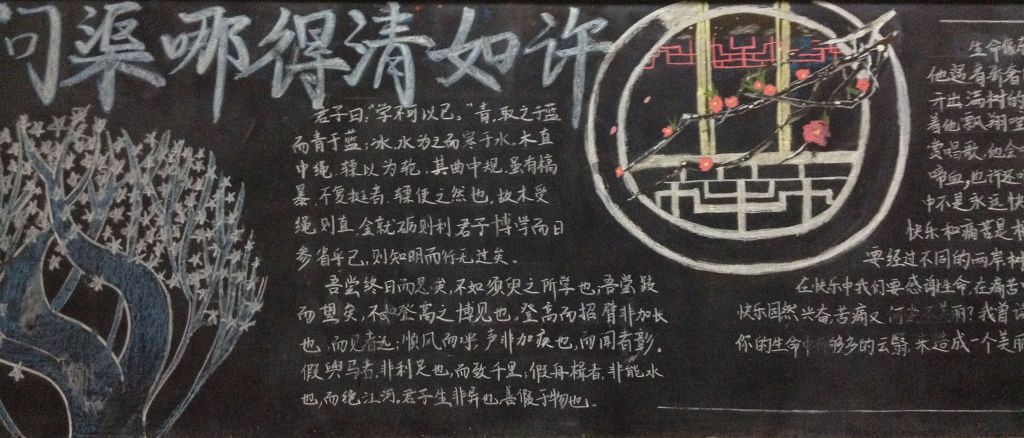 问渠哪得清如许
君子曰:“学不可以已。”青,取之于蓝
而青于蓝;冰,水为之而寒于水。木直
中绳,輮以为轮,其曲中规,虽有槁
暴,不复挺者,輮使之然也,故木受
绳则直,金就砺则利君子博学而日
参省乎己,则知明而行无过矣。
吾尝终日而思矣,不如须臾之所学也,吾尝跂
而望矣,不如登高之博见也。登高而招,臂非加长
也,而见者远;顺风而呼,声非加疾也,而闻者彰。
假舆马者,非利足也,而致千里,假舟楫者,非能水
也,而绝江河,君子生非异也,善假于物也。
生命
他遇着
开出满树的
着他飘翔
赏唱歌,他会
啼血,也许
中不是永远快
快乐和痛苦是相
要经过不同的两岸
在快乐中我们要感谢生命,在痛苦
快乐固然兴奋,苦痛又何尝不美丽?我曾读
你的生命中有够多的云翳,来造成一个美丽